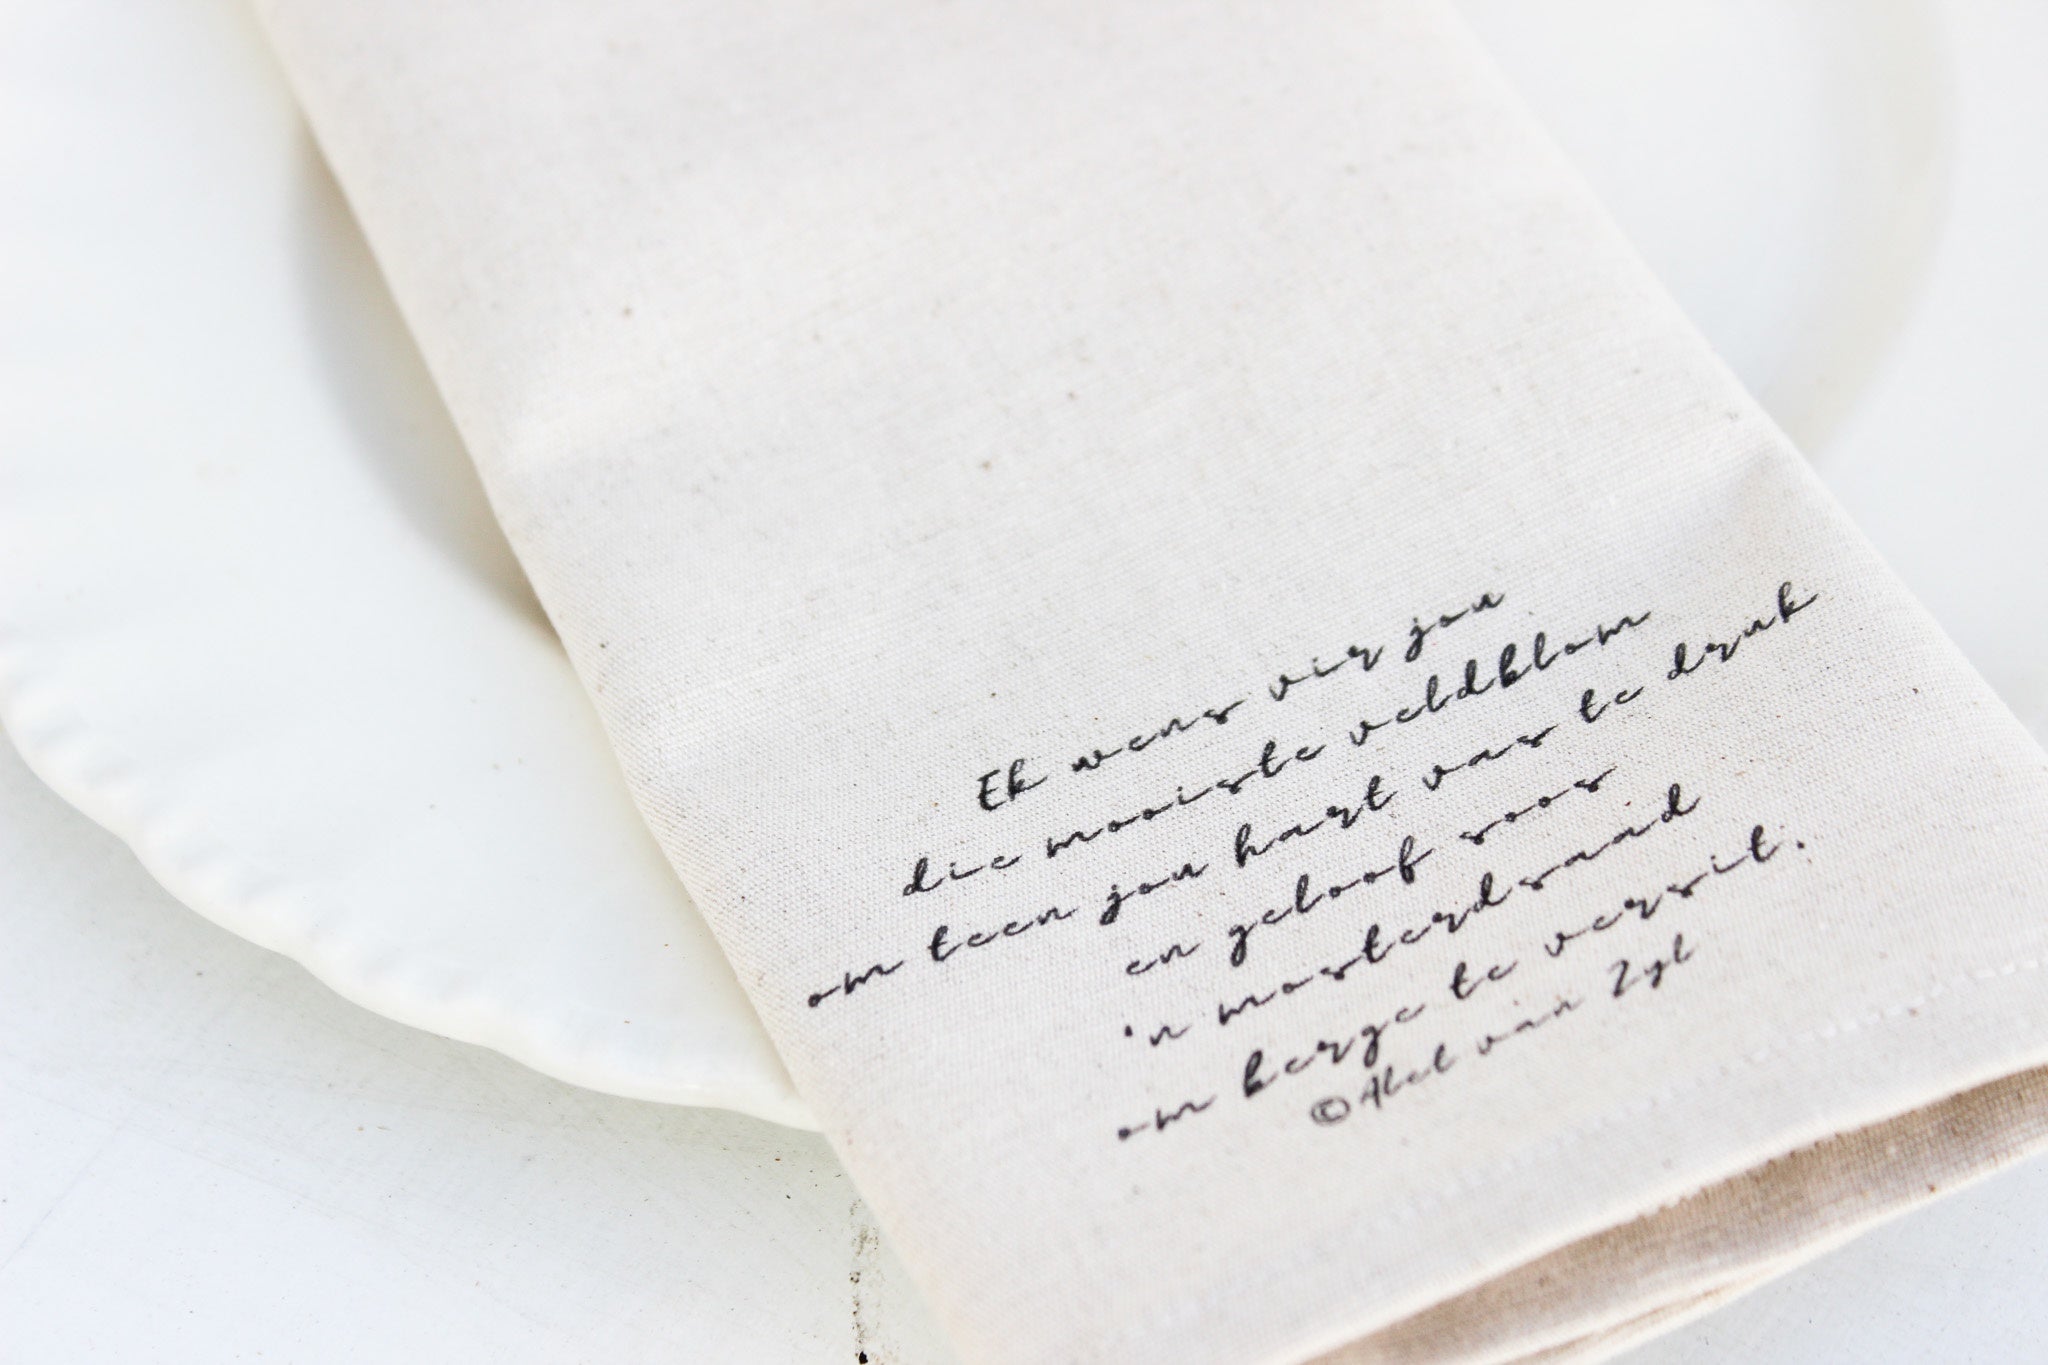 Ek wens vir jou
die mooiste veldblom
om teen jou hart vas te druk
en geloof soos
'n mosterdsaad
om berge te versit.
©Abel van Zyl